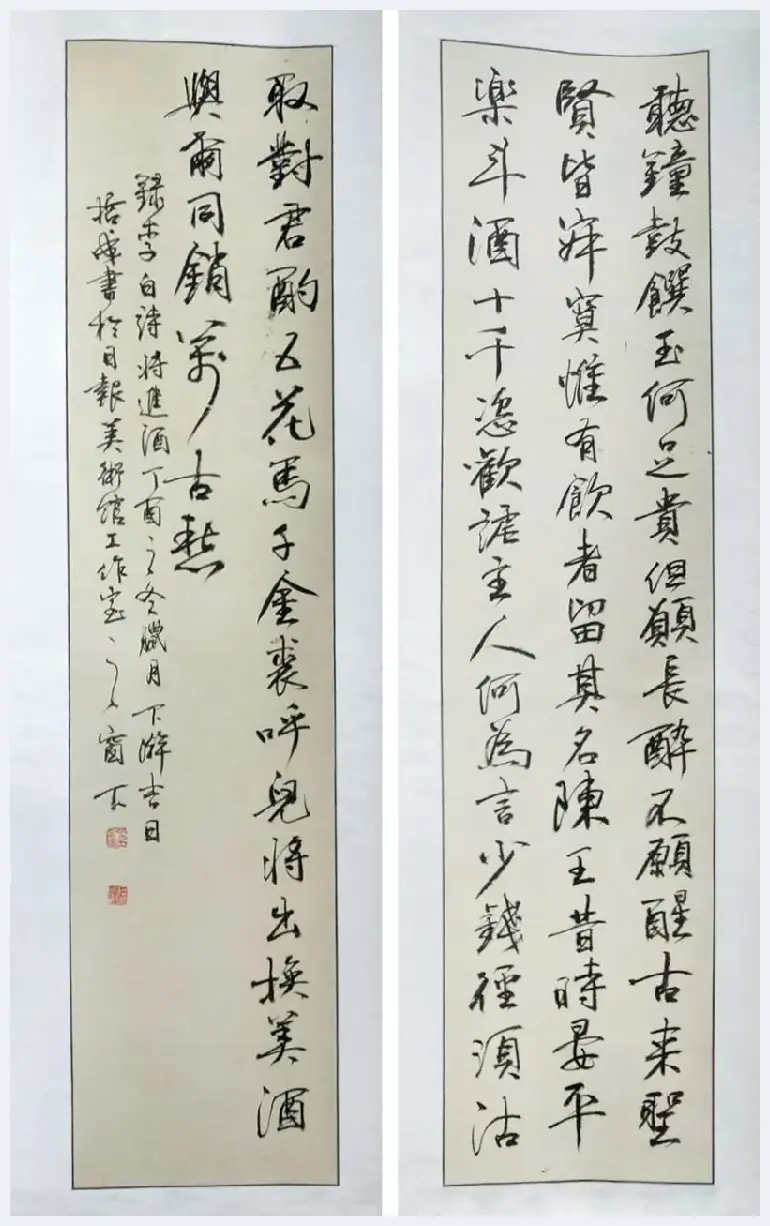 聽鐘鼓饌玉何足貴但願長醉不願醒古来聖
賢皆寂寞惟有飲者留其名陳王昔時宴平
楽斗酒十千恣歡謔主人何為言少錢徑須沽
取對君酌五花馬千金裘呼兒將出換美酒
與爾同銷萬古愁
録李白詩将進酒丁酉之冬臘月下澣吉日
書於日報美術館工作室之南窗下